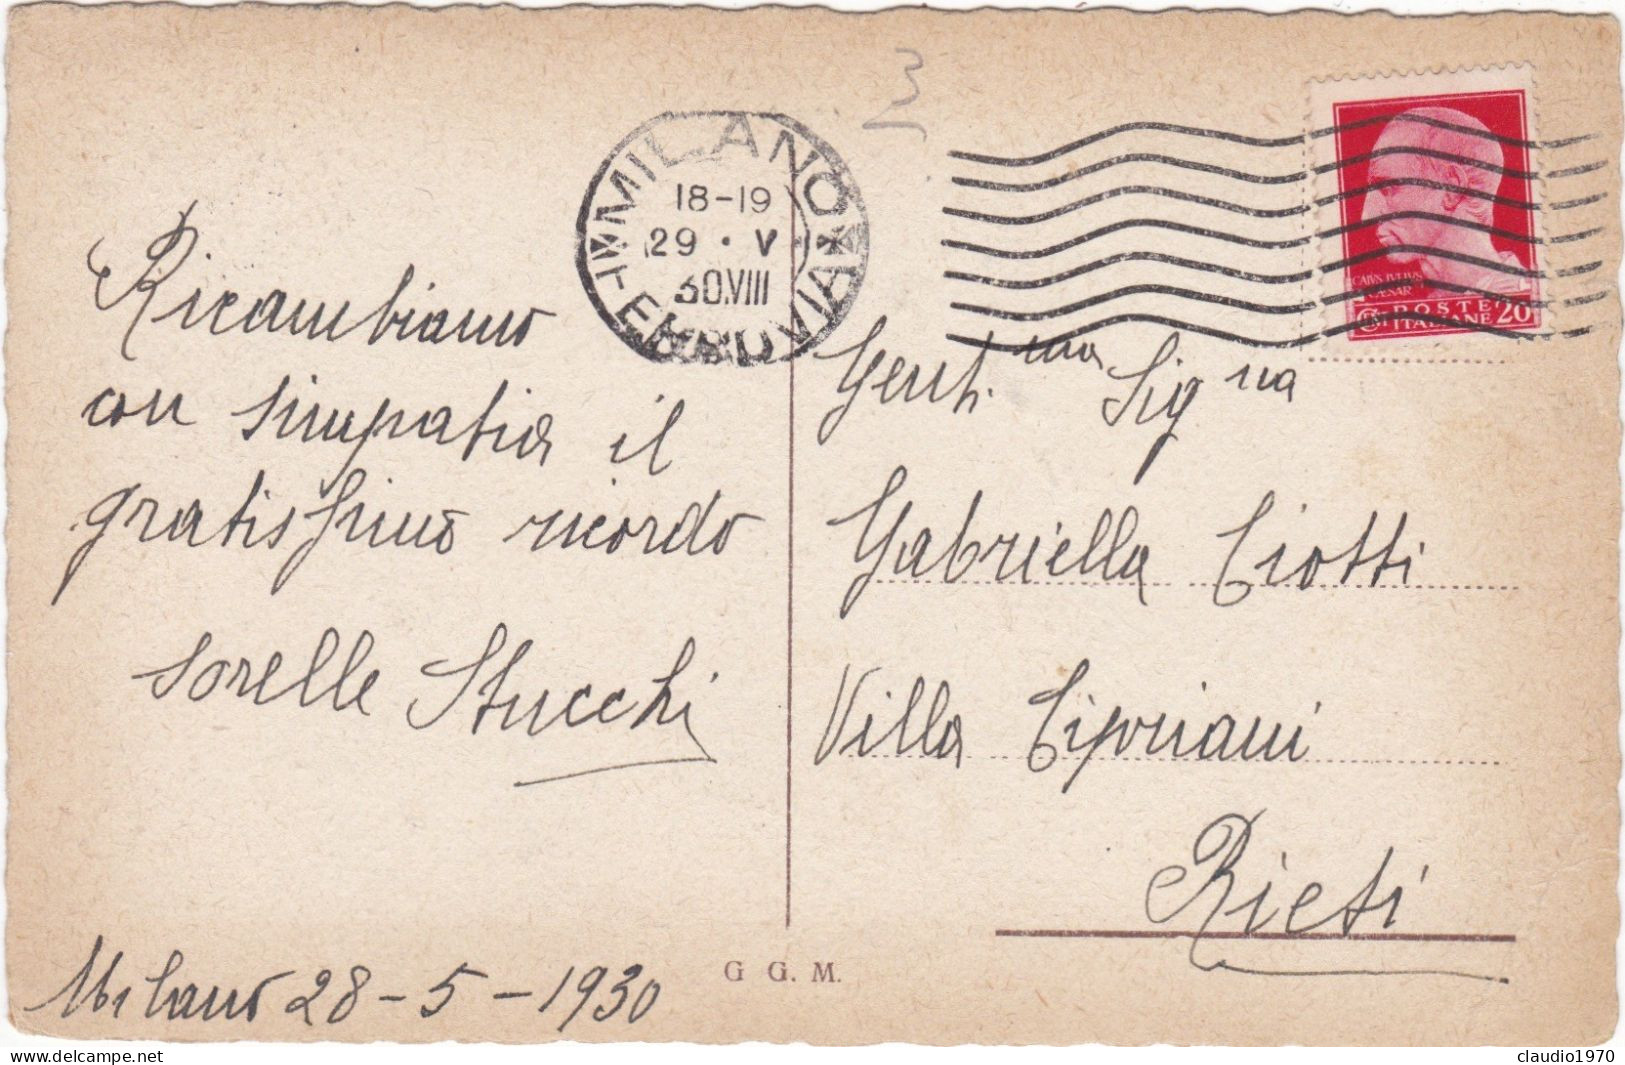 Ricambiamo
con simpatia il
gratissimo ricordo
sorelle Stucchi
Milano 28-5-1930
MILANO
18-19
29 • V
30.VIII
FERROVIA
CAIVS·IVLIVS
CAESAR
POSTE
ITALIANE 20
Gent.ma Sig na
Gabriella Ciotti
Villa Cipriani
Rieti
G G. M.
www.delcampe.net
claudio1970